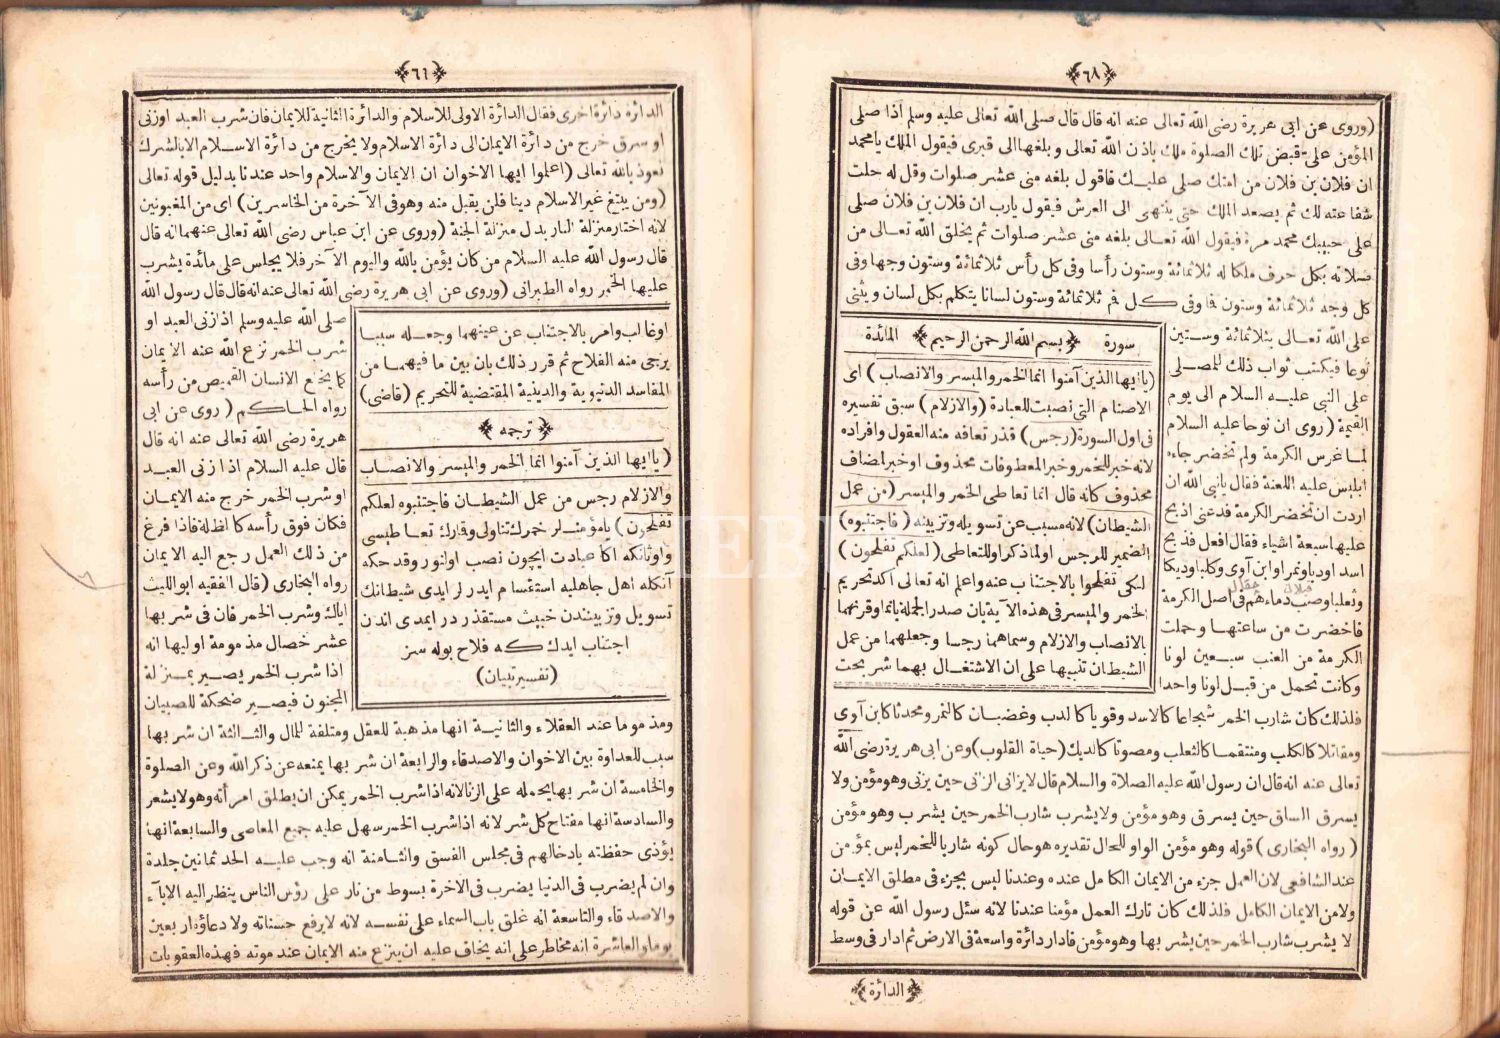 ﴿٦٨﴾
(وروى عن ابى هريرة رضى الله تعالى عنه انه قال قال صلى الله تعالى عليه وسلم اذا صلى
المؤمن على قبض تلك الصلوة ملك باذن الله تعالى و بلغها الى قبرى فيقول الملك يا محمد
ان فلان بن فلان من امتك صلى عليك فاقول بلغه منى عشر صلوات وقل له حلت
شفاعته لك ثم يصعد الملك حتى ينتهى الى العرش فيقول يارب ان فلان بن فلان صلى
على حبيبك محمد مرة فيقول الله تعالى بلغه منى عشر صلوات ثم يخلق الله تعالى من
صلاته بكل حرف ملكا له ثلاثمائة وستون رأسا وفى كل رأس ثلاثمائة وستون وجها وفى
كل وجه ثلاثمائة وستون فا وفى كل فم ثلاثمائة وستون لسانا يتكلم بكل لسان ويثنى
على الله تعالى بثلاثمائة وستين
نوعا فيكتب ثواب ذلك للمصلى
على النبى عليه السلام الى يوم
القيمة (روى ان نوحا عليه السلام
لما غرس الكرمة ولم تخضر جاءه
ابليس عليه اللعنة فقال يانبى الله ان
اردت ان تخضر الكرمة فدعنى اذبح
عليها سبعة اشياء فقال افعل فذبح
اسد اودبا ونمرا وابن آوى وكلبا وديكا
وثعلبا وصب دماءهم فى اصل الكرمة
فاخضرت من ساعتها وحملت
الكرمة من العنب سبعين لونا
وكانت تحمل من قبل لونا واحدا
سورة ﴿بسم الله الرحمن الرحيم﴾ المائدة
(يا ايها الذين آمنوا انما الخمر والميسر والانصاب) اى
الاصنام التى نصبت للعبادة (والازلام) سبق تفسيره
فى اول السورة (رجس) قذر تعافه منه العقول وافراده
لانه خبر للخمر وخبر المعطوفات محذوف او خبر لمضاف
محذوف كانه قال انما تعاطى الخمر والميسر (من عمل
الشيطان) لانه مسبب عن تسويله وتزيينه (فاجتنبوه)
الضمير للرجس او لما ذكر او للتعاطى (لعلكم تفلحون)
لكى تفلحوا بالاجتناب عنه واعلم انه تعالى اكد تحريم
الخمر والميسر فى هذه الآية بان صدر الجملة بانما وقرنهما
بالانصاب والازلام وسماهما رجسا وجعلهما من عمل
الشيطان تنبيها على ان الاشتغال بهما شر بحت
فلذلك كان شارب الخمر شجاعا كالاسد وقويا كالدب وغضبان كالنمر ومحدثا كابن آوى
ومقاتلا كالكلب ومنتقما كالثعلب ومصوتا كالديك (حياة القلوب) وعن ابى هريرة رضى الله
تعالى عنه انه قال ان رسول الله عليه الصلاة والسلام قال لا يزنى الزانى حين يزنى وهو مؤمن ولا
يسرق السارق حين يسرق وهو مؤمن ولا يشرب شارب الخمر حين يشرب وهو مؤمن
(رواه البخارى) قوله وهو مؤمن الواو للحال تقديره هو حال كونه شاربا للخمر ليس بمؤمن
عند الشافعى لان العمل جزء من الايمان الكامل عنده وعندنا ليس بجزء فى مطلق الايمان
ولا من الايمان الكامل فلذلك كان تارك العمل مؤمنا عندنا لانه سئل رسول الله عن قوله
لا يشرب شارب الخمر حين يشربها وهو مؤمن فادار دائرة واسعة فى الارض ثم ادار فى وسط
﴿الدائرة﴾
﴿٦٩﴾
الدائرة دائرة اخرى فقال الدائرة الاولى للاسلام والدائرة الثانية للايمان فان شرب العبد او زنى
او سرق خرج من دائرة الايمان الى دائرة الاسلام ولا يخرج من دائرة الاسلام الا بالشرك
نعوذ بالله تعالى (اعلموا ايها الاخوان ان الايمان والاسلام واحد عندنا بدليل قوله تعالى
(ومن يبتغ غير الاسلام دينا فلن يقبل منه وهو فى الآخرة من الخاسرين) اى من المغبونين
لانه اختار منزلة النار بدل منزلة الجنة (وروى عن ابن عباس رضى الله تعالى عنهما انه قال
قال رسول الله عليه السلام من كان يؤمن بالله واليوم الآخر فلا يجلس على مائدة يشرب
عليها الخمر رواه الطبرانى (وروى عن ابى هريرة رضى الله تعالى عنه انه قال قال رسول الله
صلى الله عليه وسلم اذا زنى العبد او
شرب الخمر نزع الله عنه الايمان
كما يخلع الانسان القميص من رأسه
رواه الحاكم (روى عن ابى
هريرة رضى الله تعالى عنه انه قال
قال عليه السلام اذا زنى العبد
او شرب الخمر خرج منه الايمان
فكان فوق رأسه كالظلة فاذا فرغ
من ذلك العمل رجع اليه الايمان
رواه البخارى (قال الفقيه ابو الليث
اياك وشرب الخمر فان فى شربها
عشر خصال مذمومة اوليها انه
اذا شرب الخمر يصير بمنزلة
المجنون فيصير ضحكة للصبيان
او غالب وامر بالاجتناب عن عينهما وجعله سببا
يرجى منه الفلاح ثم قرر ذلك بان بين ما فيهما من
المفاسد الدنيوية والدينية المقتضية للتحريم (قاضى)
﴿ترجمه﴾
(يا ايها الذين آمنوا انما الخمر والميسر والانصاب
والازلام رجس من عمل الشيطان فاجتنبوه لعلكم
تفلحون) يا مؤمنلر خمرك تناولى وقمارك تعاطيسى
واوثانكه اكا عبادت ايچون نصب اولنور وقدحكه
آنكله اهل جاهليه استقسام ايدرلر ايدى شيطانك
تسويل وتزييندن خبيث مستقذر در ايمدى اندن
اجتناب ايدك كه فلاح بوله سز
(تفسير تبيان)
ومذموما عند العقلاء والثانية انها مذهبة للعقل ومتلفة للمال والثالثة ان شربها
سبب للعداوة بين الاخوان والاصدقاء والرابعة ان شربها يمنعه عن ذكر الله وعن الصلوة
والخامسة ان شربها يحمله على الزنا لانه اذا شرب الخمر يمكن ان يطلق امرأته وهو لا يشعر
والسادسة انها مفتاح كل شر لانه اذا شرب الخمر سهل عليه جميع المعاصى والسابعة انها
يؤذى حفظته بادخالهم فى مجلس الفسق والثامنة انه وجب عليه الحد ثمانين جلدة
وان لم يضرب فى الدنيا يضرب فى الاخرة بسوط من نار على رؤس الناس ينظر اليه الاباء
والاصدقاء والتاسعة انه غلق باب السماء على نفسه لانه لا يرفع حسناته ولا دعاؤه اربعين
يوما والعاشرة انه مخاطر على انه يخاف عليه ان ينزع منه الايمان عند موته فهذه العقوبات